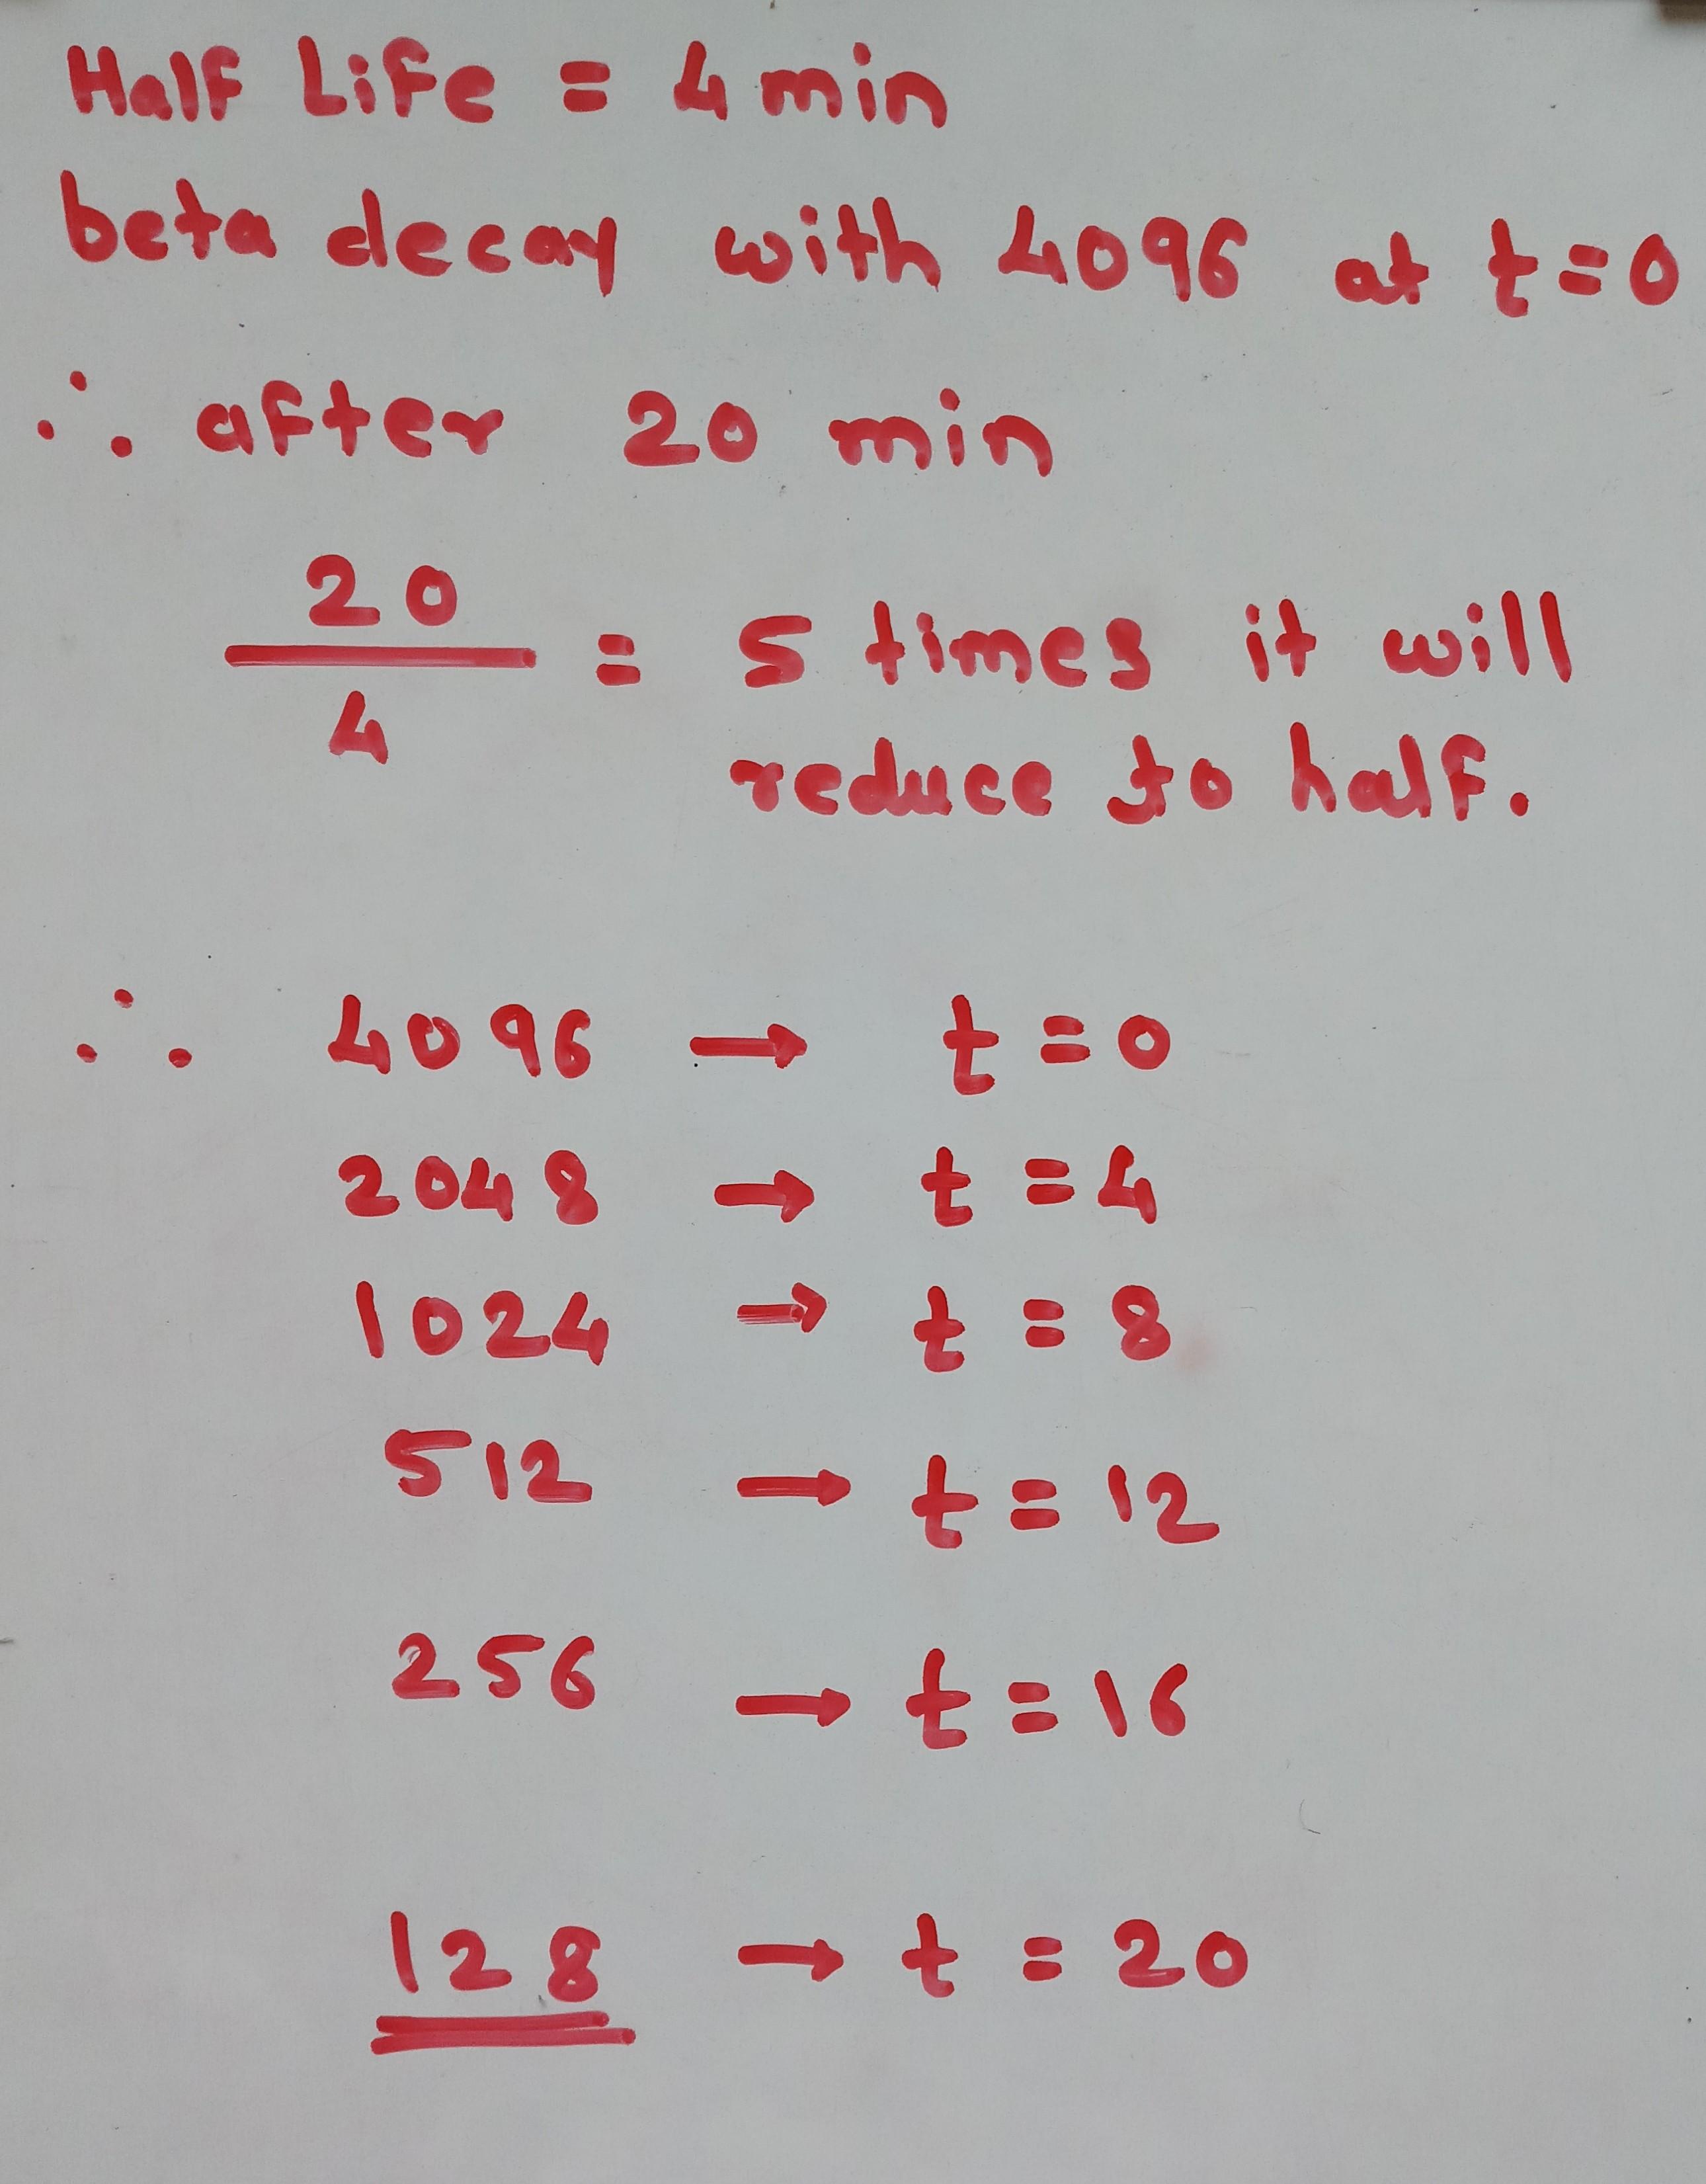 Half Life = 4 min
beta decay with 4096 at t=0
∴ after 20 min
20
4
= 5 times it will
reduce to half.
∴ 4096 → t = 0
2048 → t = 4
1024 → t = 8
512 → t = 12
256 → t = 16
128 → t = 20